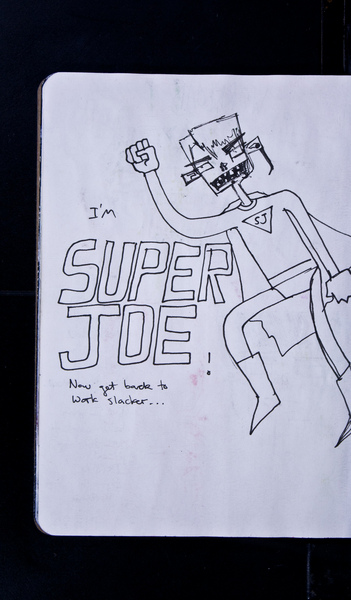 SJ
I'M
SUPER
JOE!
Now get back to
work slacker...